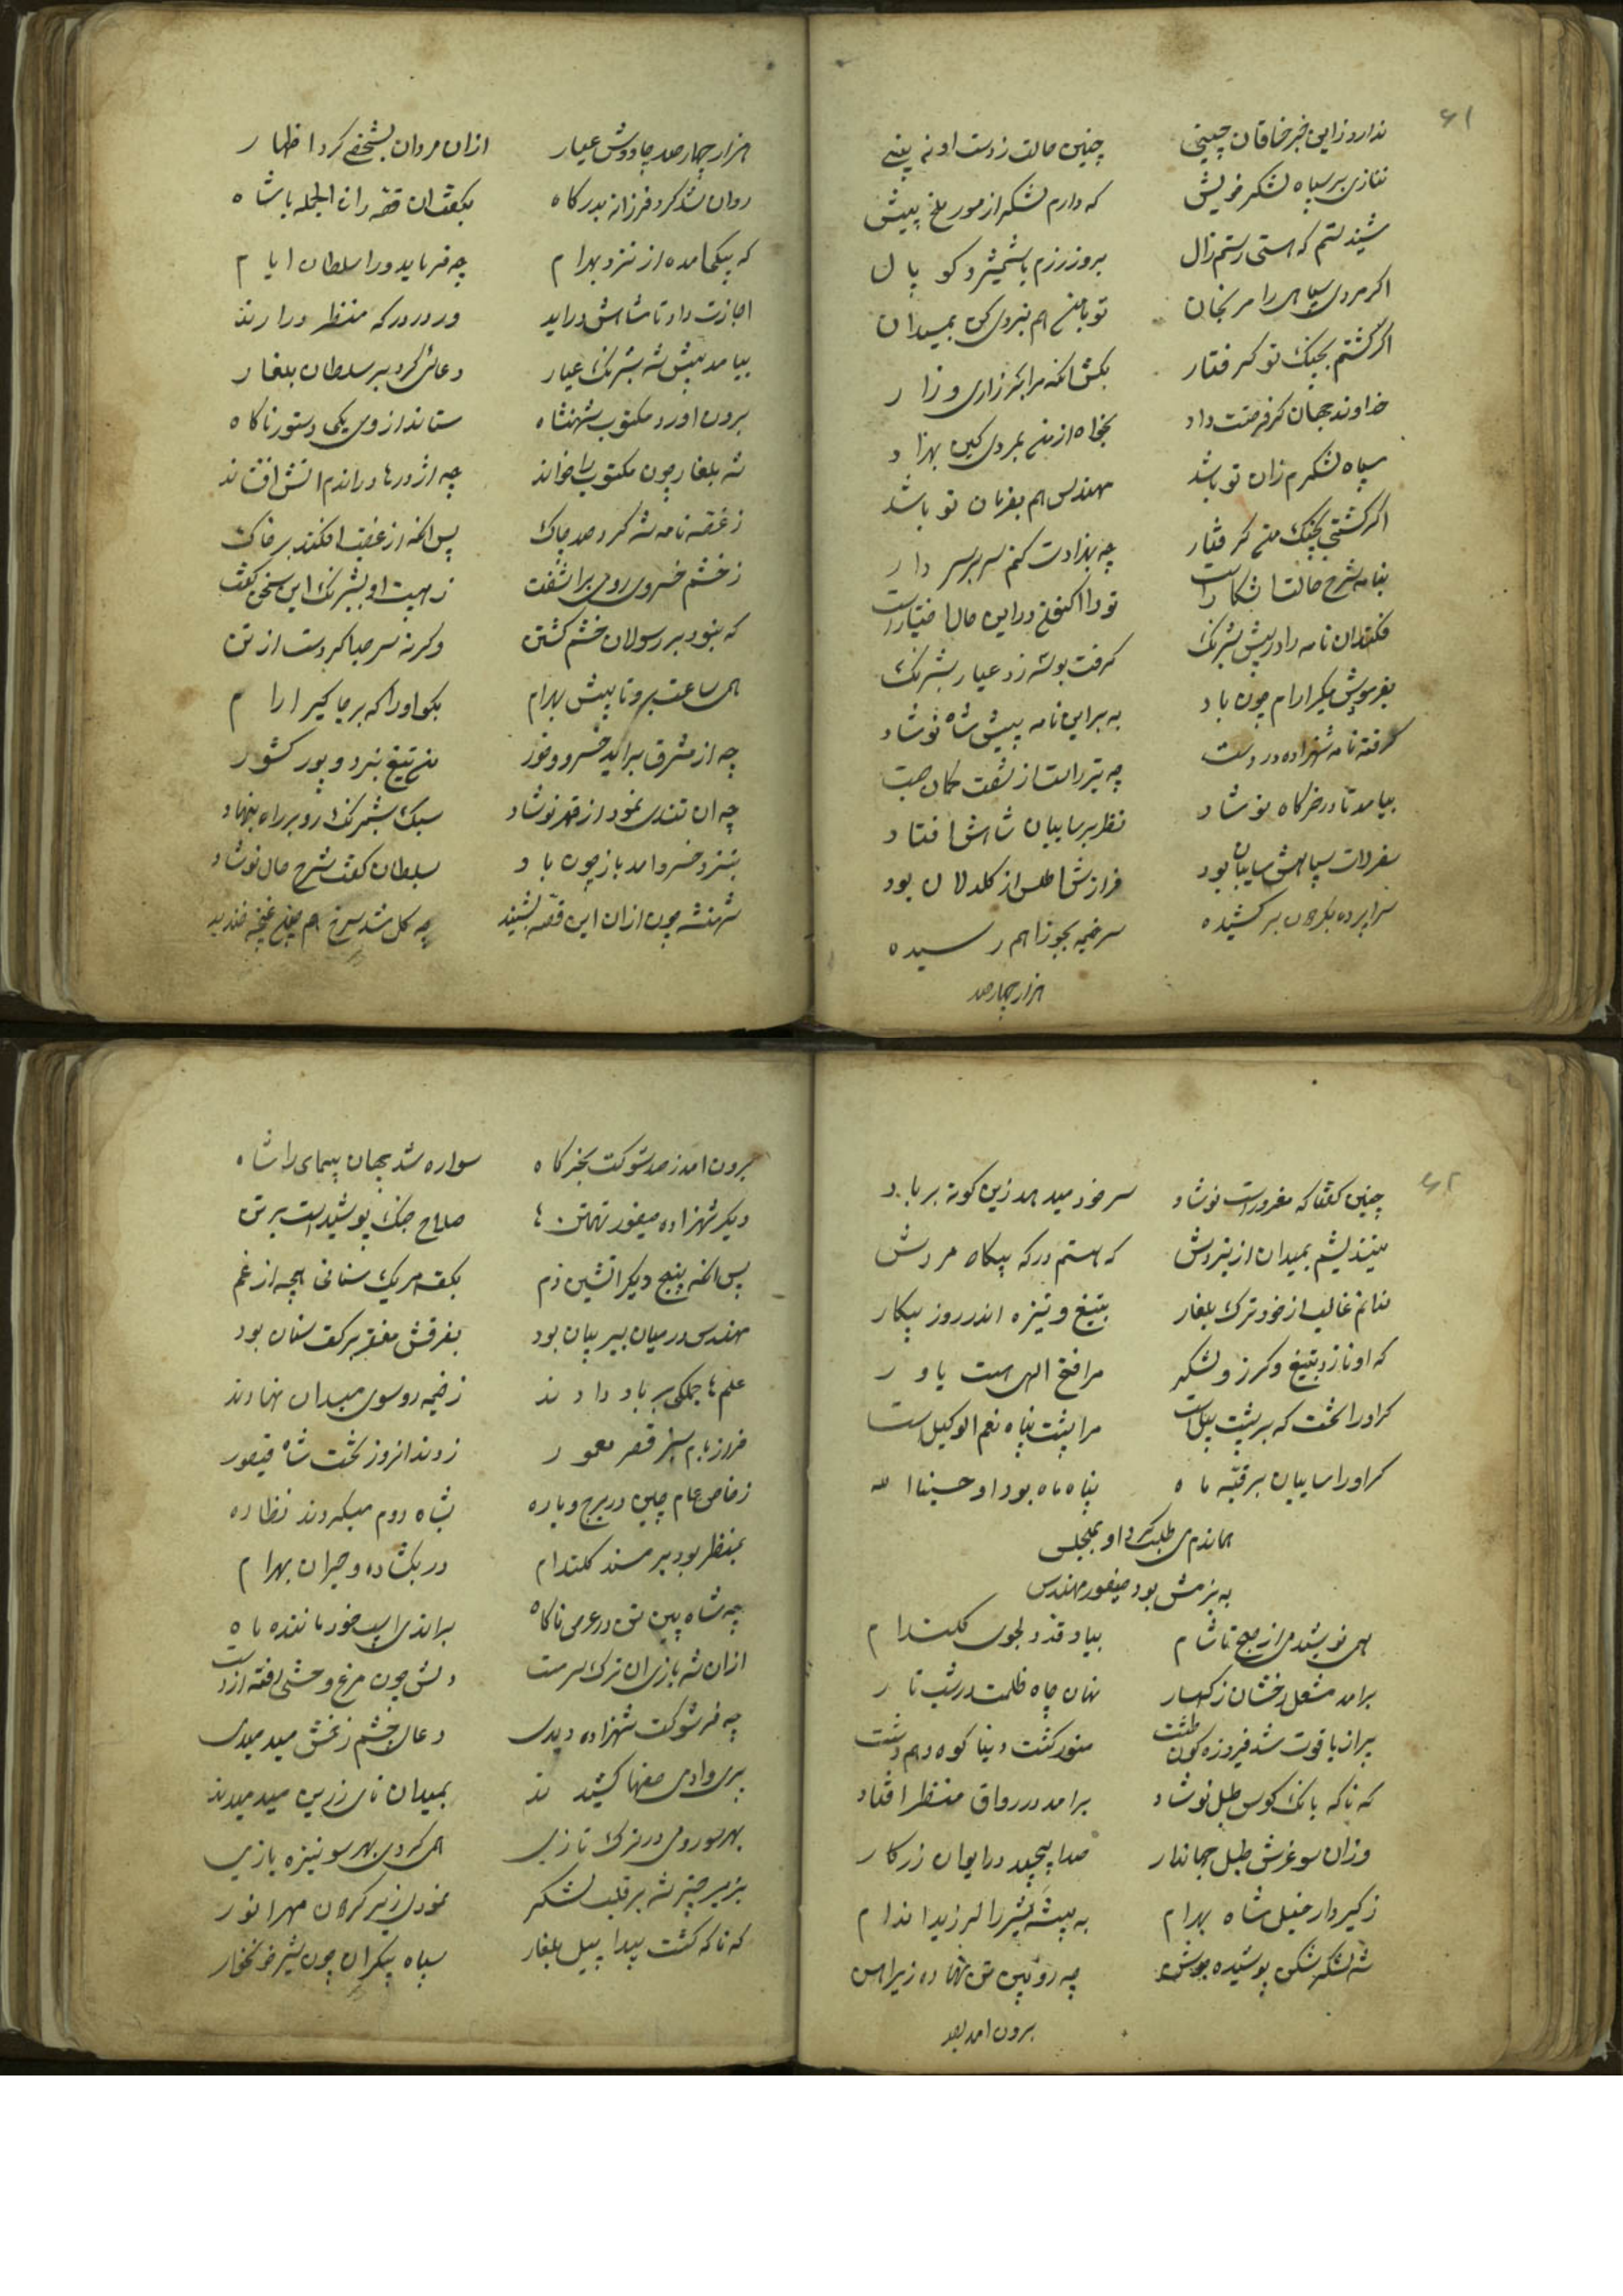 ۶۱
ندارد زاین خبر خاقان چینی چنین حالت ز دست او نه بینی
ننازی بر سپاه لشکر خویش که دارم لشکر از مور ملخ بیش
شنیدستم که هستی رستم زال بروز رزم با شمشیر و کوپال
اکر مردی سپاهی را مرنجان تو با من هم نبردی کن بمیدان
اکر کشتم بجنک تو کرفتار بکش انکه مرا بر زاری و زار
خداوند جهان کر فرصت داد بخواه از من بمردی کین بهزاد
سپاه لشکرم زان تو باشد مهندس هم بفرمان تو باشد
اکر کشتی بجنک من کرفتار چه بهزادت کنم سر بر سر دار
بنامه شرح حالت اشکار است تو را اکنون در این حال اختیار است
فکند ان نامه را در پیش شبرنک کرفت بوسه زد عیار شبرنک
بفرمودش مکیر ارام چون باد به بر این نامه پیش شاه نوشاد
کرفته نامه شهزاده در دست چه تیر راست از شفت کمان جست
بیامد تا در خرکاه نوشاد نظر بر سایبان شاهش افتاد
سفرلات سپاهش سایبان بود فرازش اطلس از کلدلان بود
سراپرده بکردون بر کشیده سر خیمه بجوزا هم رسیده
هزار چهار صد
هزار چهار صد چاووش عیار ازان مردان بشخصی کرد اظهار
روان شد کرد فرزانه بدرکاه بکفت ان قصه را فی الجمله با شاه
که پیکی امده از نزد بهرام چه فرماید ورا سلطان ایام
اجازت داد تا شاهش دراید ور در درکه منتظر دارند
بیامد پیش شه شبرنک عیار دعائی کرد بر سلطان بلغار
برون اورد مکتوب شهنشاه ستاند از وی یکی دستور ناکاه
شه بلغار چون مکتوب را خواند چه اژدرها دراندم اتش افشاند
ز غصه نامه شه کرد صد چاک پس انکه از غضب افکند بر خاک
ز خشم خسروی رومی براشفت ز هیبت او بشبرنک این سخن کفت
که نبود بر رسولان خشم کشتن وکرنه سر جدا کردمت از تن
هم ساعت برو تا پیش بهرام بکو او را که بر جا کیر ارام
چه از مشرق براید خسرو خور من تیغ نبرد و پور کشور
چه ان تندی نمود از قهر نوشاد سبک شبرنک رو بر راه بنهاد
بنزد خسرو امد باز چون باد بسلطان کفت شرح حال نوشاد
شهنشه چون ازان این قصه بشنید چه کل شد سرخ هم چون غنچه خندید
۶۲
چنین کفتا که مغرور است نوشاد سر خود میدهد زین کونه بر باد
میندیشم بمیدان از نبردش که هستم در که پیکار مردش
ندانم غالب از خود ترک بلغار بتیغ و نیزه اندر روز پیکار
که او نازد بتیغ و کرز و لشکر مرا فتح الهی هست یاور
کر او را تخت که بر پشت پیل است مرا پشت پناه نعم الوکیل است
کر او را سایبان بر قبه ماه پناه ماه بود او حسبنا الله
هماندم طلب کرد او بمجلس
به بزمش بود صیفور مهندس
همی نوشید می از صبح تا شام بیاد قد دلجوی کلندام
برامد مشعل رخشان ز کهسار نهان چاه ظلمت در شب تار
پر از یاقوت شد فیروزه کون طشت منور کشت دنیا کوه و هم دشت
که ناکه بانک کوس طبل نوشاد برامد در رواق منتظر افتاد
وزان سو غرش طبل جهاندار صدا پیچید در ایوان زرکار
ز کیردار خیل شاه بهرام به بیشه شیر را لرزید اندام
شه لشکر شکن پوشیده جوشن چه روئین تن نهاده زیر اهن
برون امد بصد
برون امد ز صد شوکت بخرکاه سواره شد بجهان پیمای را شاه
دیکر شهزاده صیفور تهمتن ها صلاح جنک پوشیدست بر تن
پس انکه پنج دیکر اتشین دم بکف هر یک سنانی بچه ارغم
مهندس در میان ببر بیان بود بفرقش مغفر بر کف سنان بود
علم ها جملکی بر باد دادند ز خیمه رو سوی میدان نهادند
فراز بام سبز قصر معمور زدند انروز تخت شاه فیصور
ز خاص عام چین در برج و باره بشاه روم میکردند نظاره
بمنظر بود بر مسند کلندام در بکشاده و حیران بهرام
چه شاه پین تن در عرصه ناکاه براندی اسب خود ماننده ماه
ازان شه بازی ان ترک سرمست دلش چون مرغ وحشی رفته از دست
چه فر شوکت شهزاده دیدی دعای چشم زخمش میدمیدی
پری وادی صفها کشیدند بمیدان نای زرین میدمیدند
بهر سو رومی در ترک تازی همی کردی بهر سو نیزه بازی
بزیر چتر شه بر قلب لشکر نمودی زیر کردون مهر انور
که ناکه کشت پیدا پیل بلغار سپاه بیکران چون شیر خونخوار